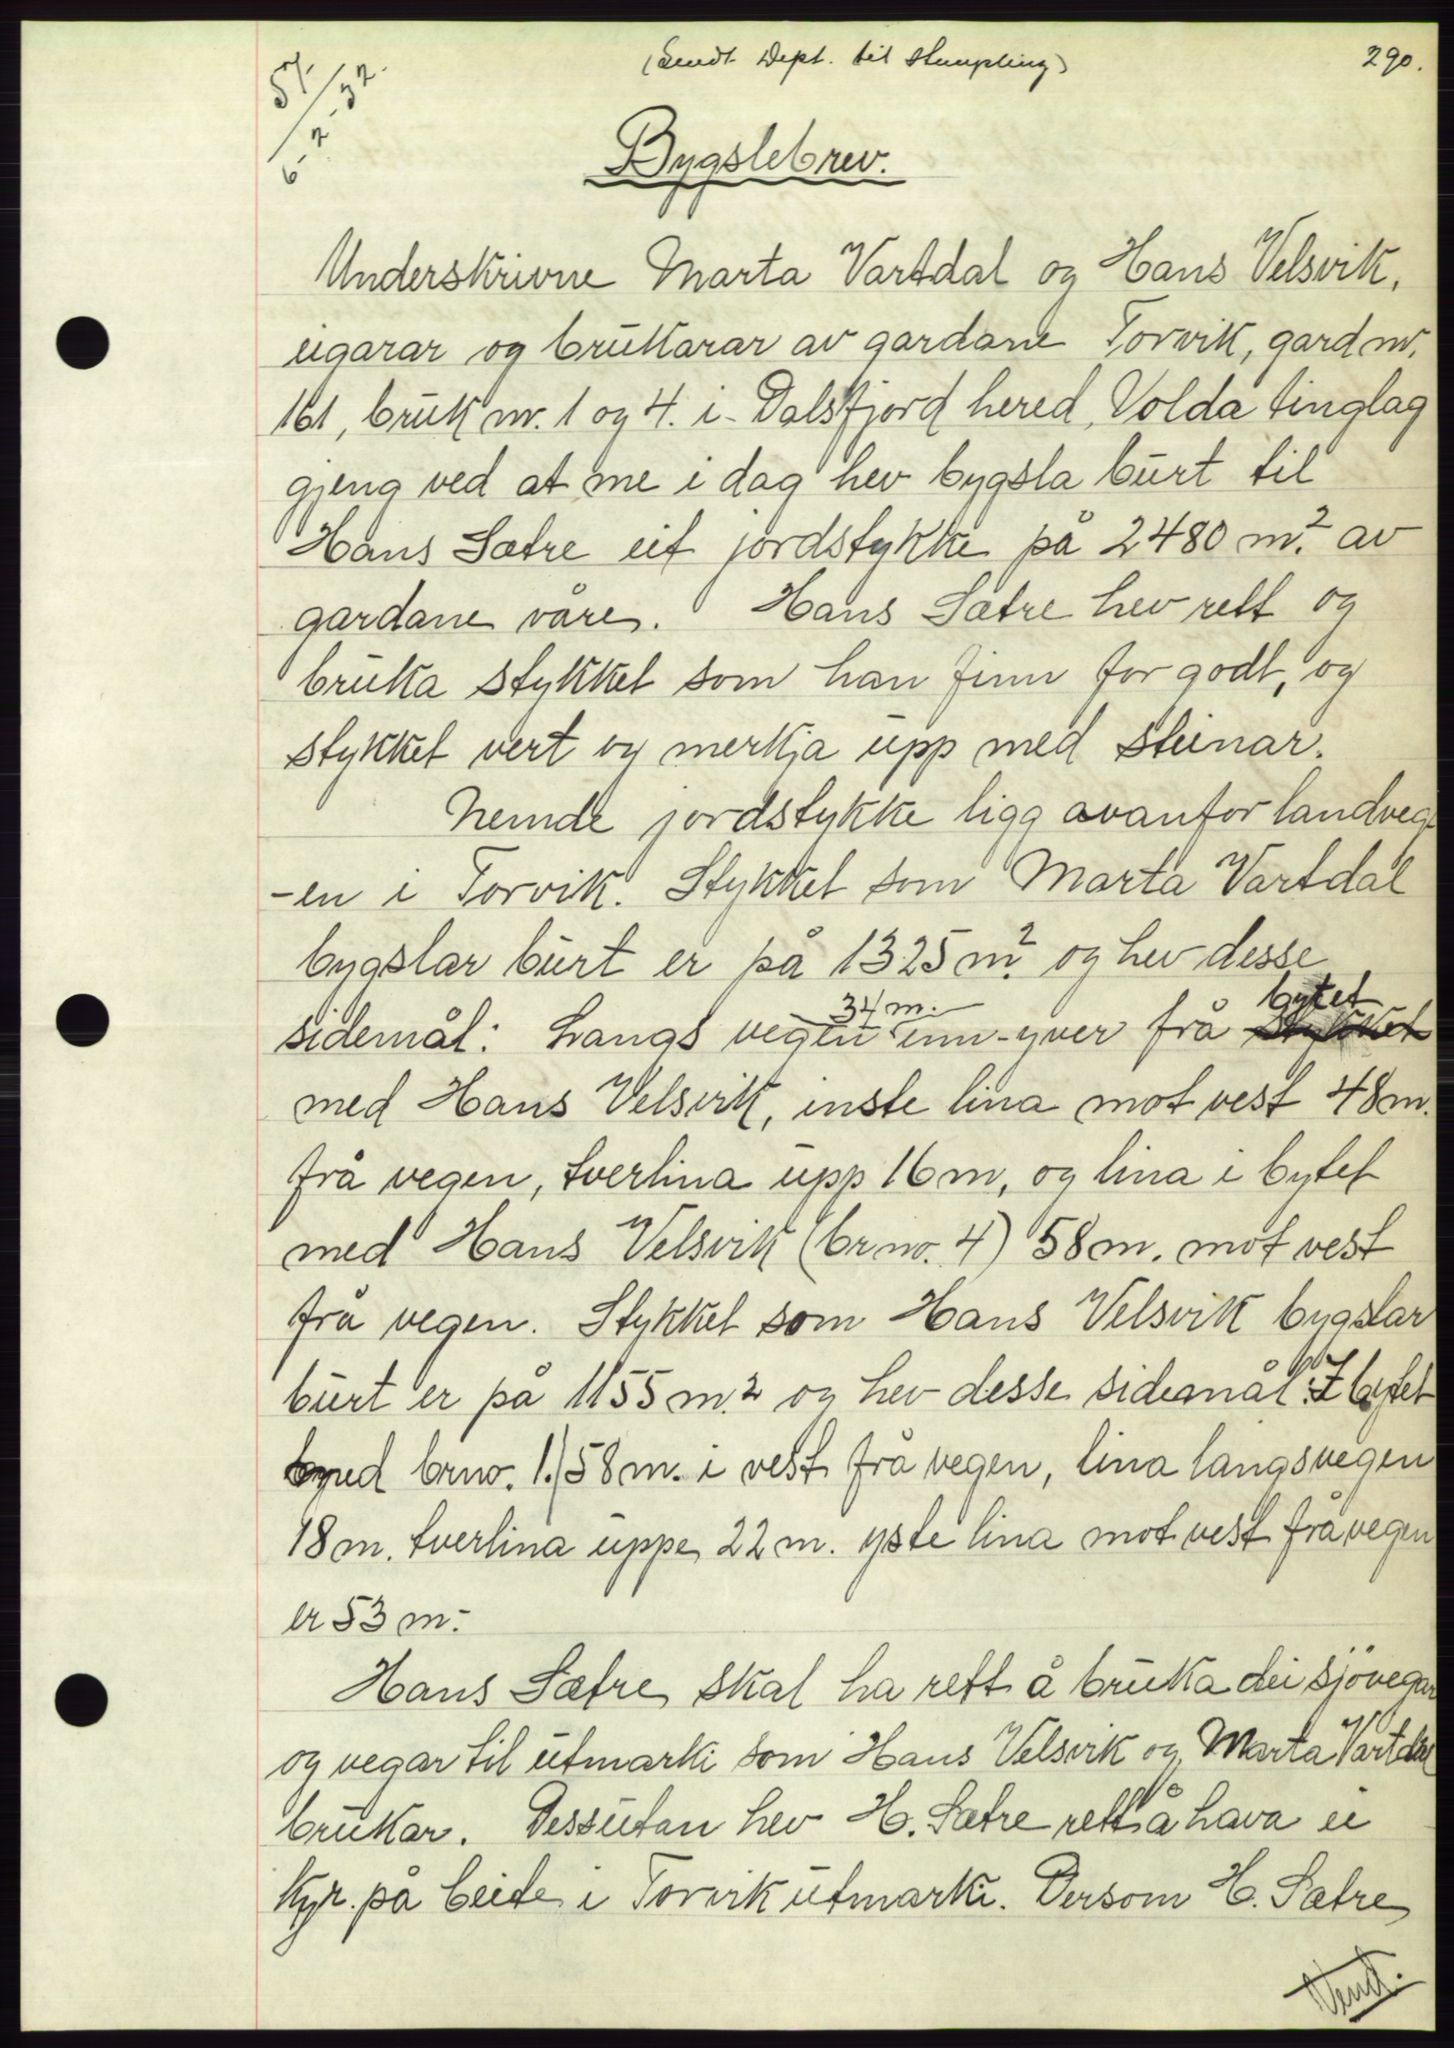 (Sendt Dept. til stempling)
290.
57/6-2-32.
Bygslebrev.
Underskrivne Marta Vartdal og Hans Velsvik,
eigarar og brukarar av gardane Torvik, gard nr.
161, bruk nr. 1 og 4. i Dalsfjord hered, Volda tinglag
gjeng ved at me i dag hev bygsla burt til
Hans Sætre eit jordstykke på 2480 m.² av
gardane våre. Hans Sætre hev rett og
bruka stykket som han finn for godt, og
stykket vert og merkja upp med steinar.
Nemde jordstykke ligg ovanfor landveg
-en i Torvik. Stykket som Marta Vartdal
bygslar burt er på 1325 m.² og hev desse
34 m. bytet
sidemål: Langs vegen inn-yver frå stykket
med Hans Velsvik, inste lina mot vest 48 m.
frå vegen, tverlina upp 16 m, og lina i bytet
med Hans Velsvik (br no. 4) 58 m. mot vest
frå vegen. Stykket som Hans Velsvik bygslar
burt er på 1155 m.² og hev desse sidemål: I bytet
med br no. 1. 58 m. i vest frå vegen, lina langs vegen
18 m. tverlina uppe 22 m. yste lina mot vest frå vegen
er 53 m.-
Hans Sætre skal ha rett å bruka dei sjövegar
og vegar til utmarki som Hans Velsvik og Marta Vartdal
brukar. Dessutan hev H. Sætre rett å hava ei
kyr på beite i Torvik utmarki. Dersom H. Sætre
Vend.